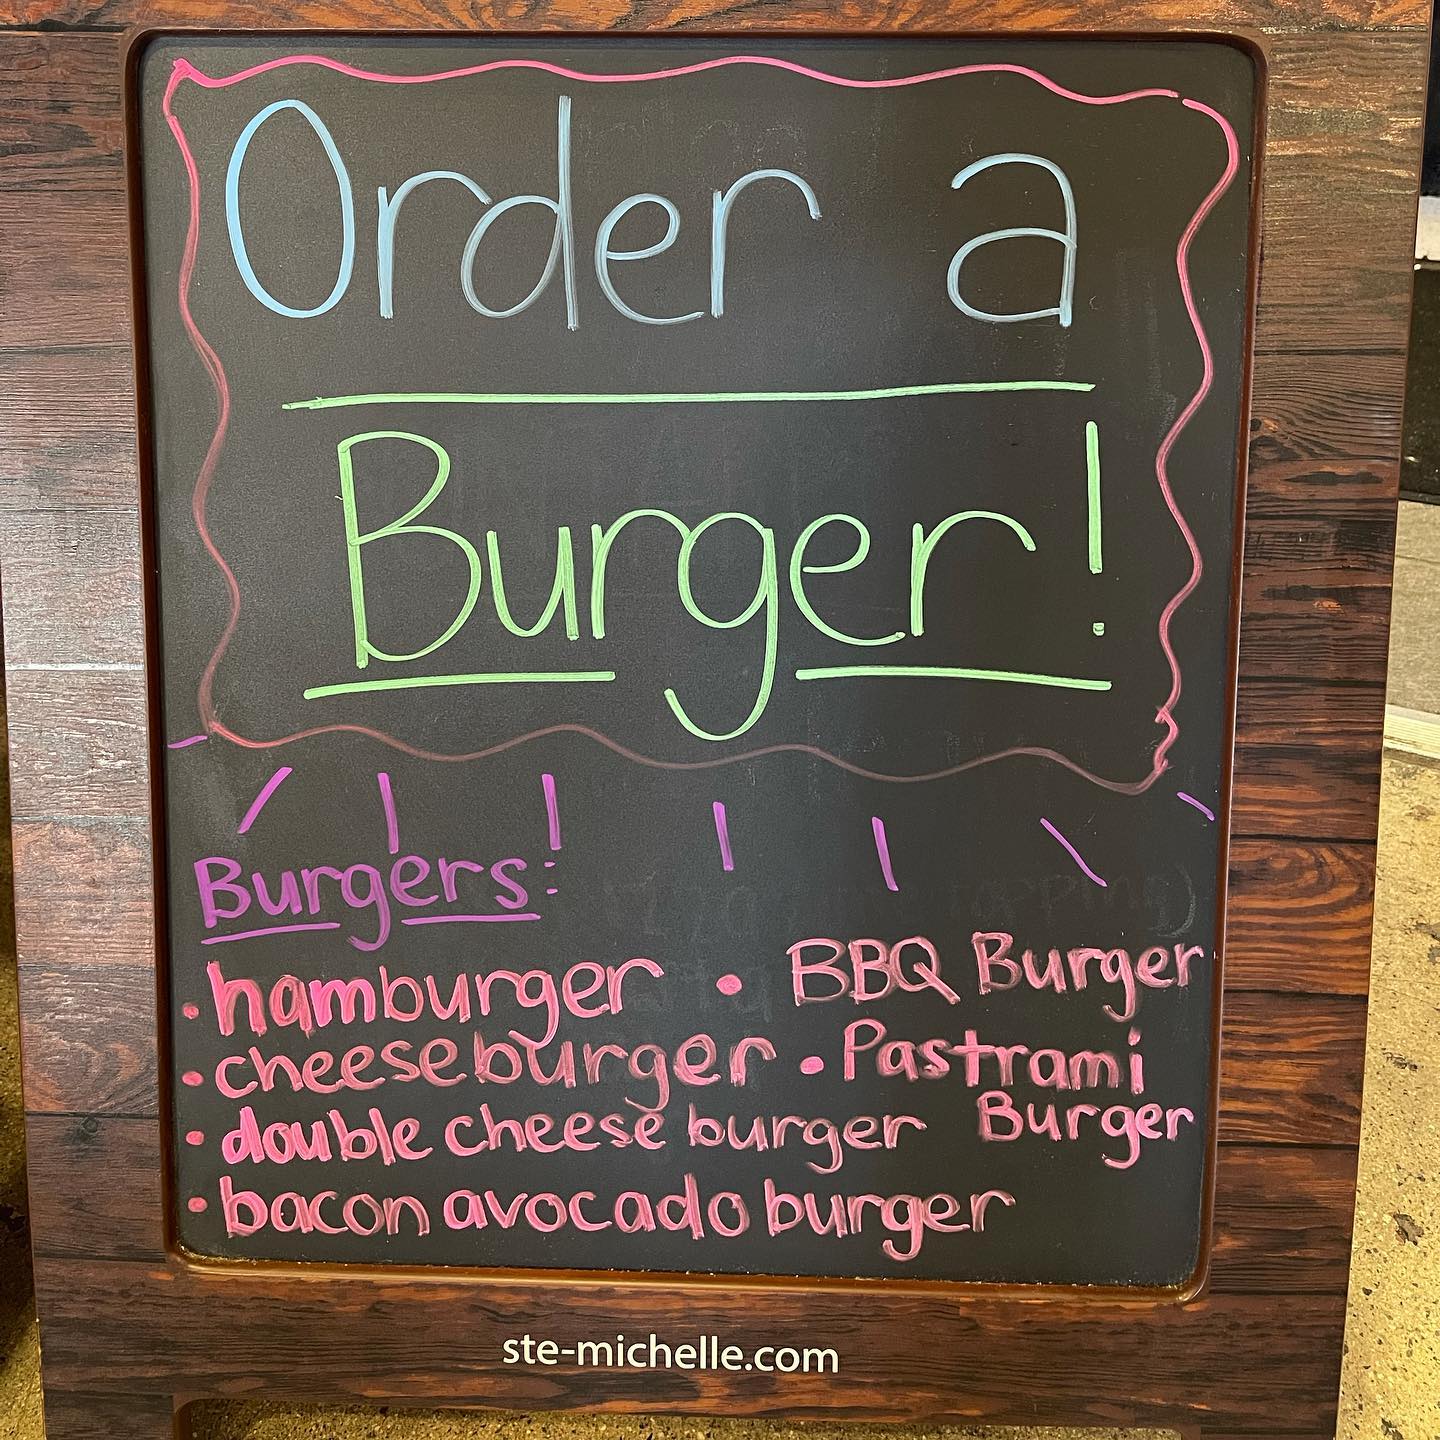 Order a
Burger!
Burgers:
• hamburger
• cheeseburger
• double cheese burger
• bacon avocado burger
• BBQ Burger
• Pastrami
Burger
ste-michelle.com